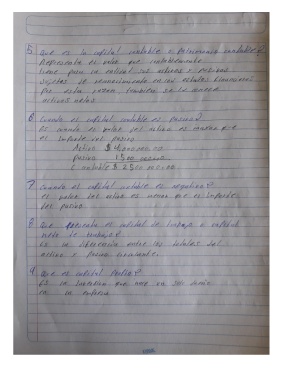 5. Que es la capital contable o patrimonio contable?
Representa el valor que contablemente
tiene para la entidad sus activos y pasivos
sujetos de reconocimiento en sus estados financieros
Por esta razon tambien se le conoce
activos netos
6. Cuando el capital contable es positivo?
Es cuando el valor del activo es mayor que
el importe del pasivo
Activo $
pasivo
C contable $
7. Cuando el capital contable es negativo?
el valor del activo es menor que el importe
del pasivo.
8. Que representa el capital de trabajo o capital
neto de trabajo?
Es la diferencia entre los totales del
activo y pasivo circulante.
9. Que es capital social?
Es la inversion que
en la empresa